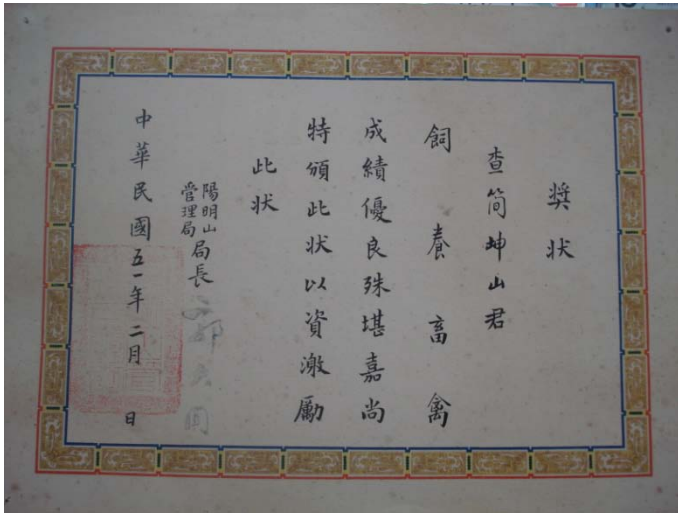 奬状
查简坤山君
飼養畜禽
成績優良殊堪嘉尚
特頒此状以資激勵
此状
陽明山
管理局
局長
中華民國五一年二月 日